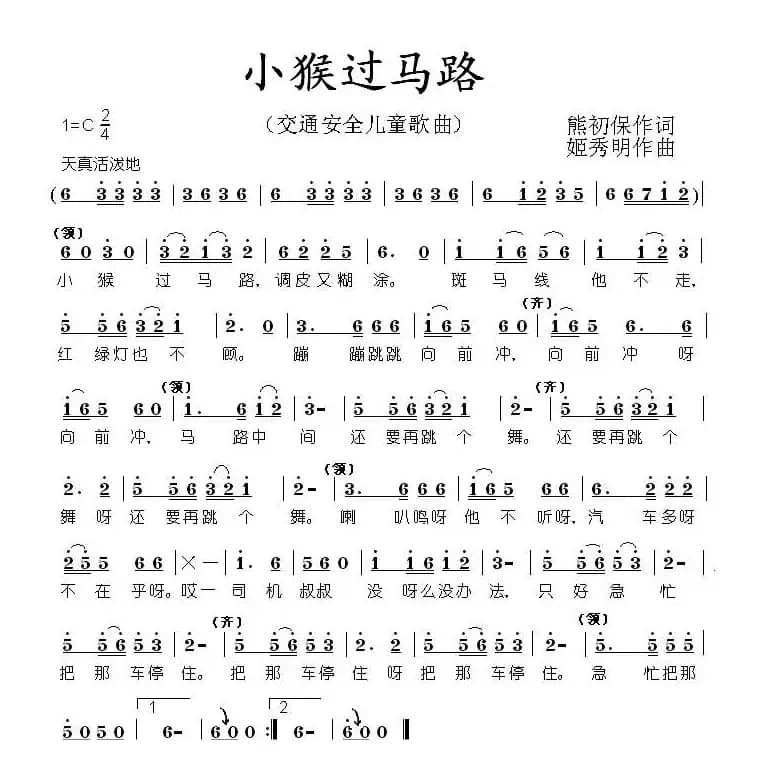 小猴过马路
1=C 2/4
（交通安全儿童歌曲）
熊初保作词
姬秀明作曲
天真活泼地
(6 3333 | 3636 | 6 3333 | 3636 | 6 1235 | 6 6712)|
(领)
60 30 | 3213 2 | 62 25 | 6. 0 | 1 1656 | 1 12 3 |
小 猴 过 马 路，调皮又糊 涂。 斑 马 线 他 不 走，
(齐)
5 56321 | 2. 0 | 3. 666 | 165 60 | 165 3. 6 |
红 绿灯也 不 顾。 蹦 蹦跳跳 向 前 冲，向 前 冲 呀
(领) (齐)
165 60 | 1. 612 | 3- | 5 56321 | 2- | 5 56321 |
向 前 冲，马 路中 间 还 要再跳 个 舞。还 要再跳 个
(领)
2. 2 | 5 56321 | 2- | 3. 666 | 165 60 | 6. 222 |
舞 呀 还 要再跳 个 舞。喇 叭鸣呀 他 不 听呀，汽 车多呀
255 66 | ×一 | 1. 1 | 5560 | 1 1612 | 3- | 5 565 3 |
不 在 乎呀。哎一 司 机 叔叔 没 呀么没办 法，只 好 急 忙
(齐) (领)
5 5653 | 2- | 5 5653 | 2. 2 | 5 5653 | 2- | 5. 555 |
把 那 车停 住。把 那 车停 住 呀 把 那 车停 住。急 忙把那
5050 | 1 6- | 600 :| 2 6- | 600 ‖